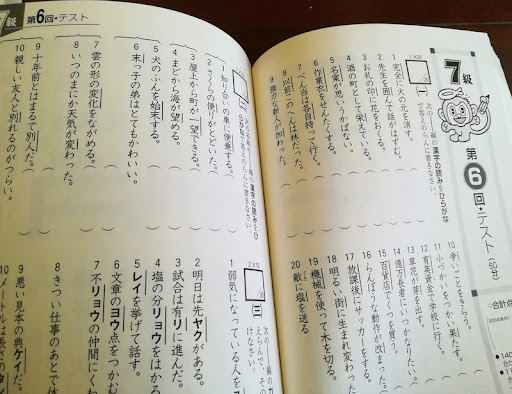 7級
第6回・テスト(60分)
(一)
次の――線の漢字の読みをひらがな
で答えのらんに書きなさい。
1 完全に火の元を消す。
2 先生を囲んで話がはずむ。
3 お礼の印に花をおくる。
4 酒の町として栄えている。
5 名案が思いうかばない。
6 作業衣をせんたくする。
7 べん当は各自持って行く。
8 以前このへんは林だった。
9
10 争いごとをきらう。
11 小づかいをつかい果たす。
12 育英資金で学校に行く。
13 草花が芽を出す。
14 億万長者にいつかなりたい。
15 百貨店でくつを買う。
16 らんぼうな動作が改まった。
17 放課後にサッカーをする。
18 明るい街に生まれ変わった
19 機械を使って木を切る。
20 敵に塩を送る
合計点
7級
第6回・テスト
(二)
次の――線の漢字の読みをひ
1 知り合いの車に便乗する。
2 さくらの便りがとどいた。
3 屋上から町が一望できる。
4 まどから海が望める。
5 犬のふんを始末する。
6 末っ子の弟はとてもかわいい。
7 雲の形の変化をながめる。
8 いつのまにか天気が変わった。
9 十年前とはまるで別人だ。
10 親しい友人と別れるのがつらい。
(三)
1 弱気になっている人を
2 明日は先ヤクがある。
3 試合は有リに進んだ。
4 塩の分リョウをはかる
5 レイを挙げて話す。
6 文章のヨウ点をつかむ
7 不リョウの仲間にくわ
8 きつい仕事のあとで体
9 悪い見本の典ケイだ。
10 メートルは長さのタ